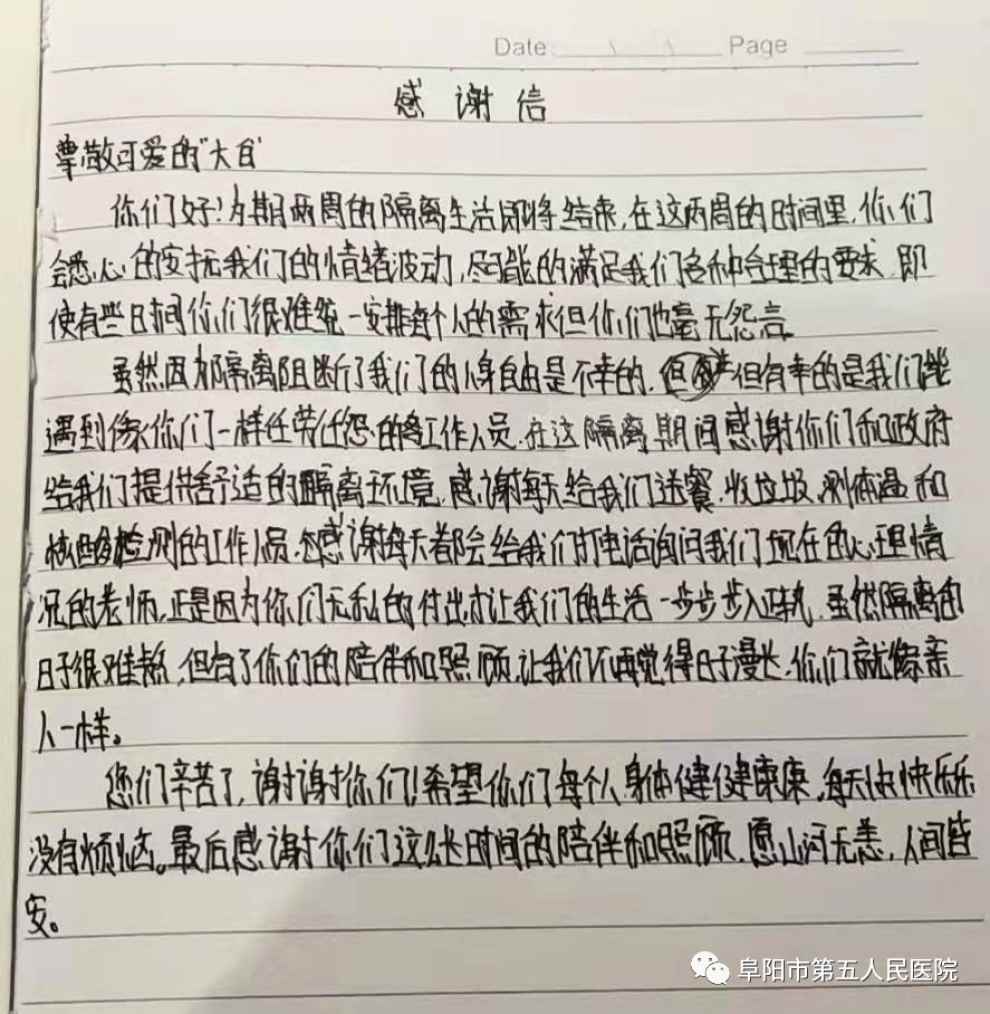 Date: Page
感谢信
尊敬可爱的"大白"
你们好!为期两周的隔离生活即将结束,在这两周的时间里,你们
会悉心的安抚我们的情绪波动,尽可能的满足我们各种合理的要求,即
使有些时间你们很难统一安排每个人的需求但你们也毫无怨言。
虽然因为隔离阻断了我们的人身自由是不幸的,但有幸的是我们能
遇到像你们一样任劳任怨的工作人员.在这隔离期间感谢你们和政府
给我们提供舒适的隔离环境,感谢每天给我们送餐、收垃圾、测体温和
核酸检测的工作人员,感谢每天都会给我们打电话询问我们现在的心理情
况的老师,正是因为你们无私的付出才让我们的生活一步步步入正轨.虽然隔离的
日子很难熬,但有了你们的陪伴和照顾,让我们不再觉得日子漫长,你们就像亲
人一样。
您们辛苦了,谢谢你们!希望你们每个人身体健健康康,每天快快乐乐
没有烦恼。最后感谢你们这么长时间的陪伴和照顾,愿山河无恙,人间皆
安。
阜阳市第五人民医院